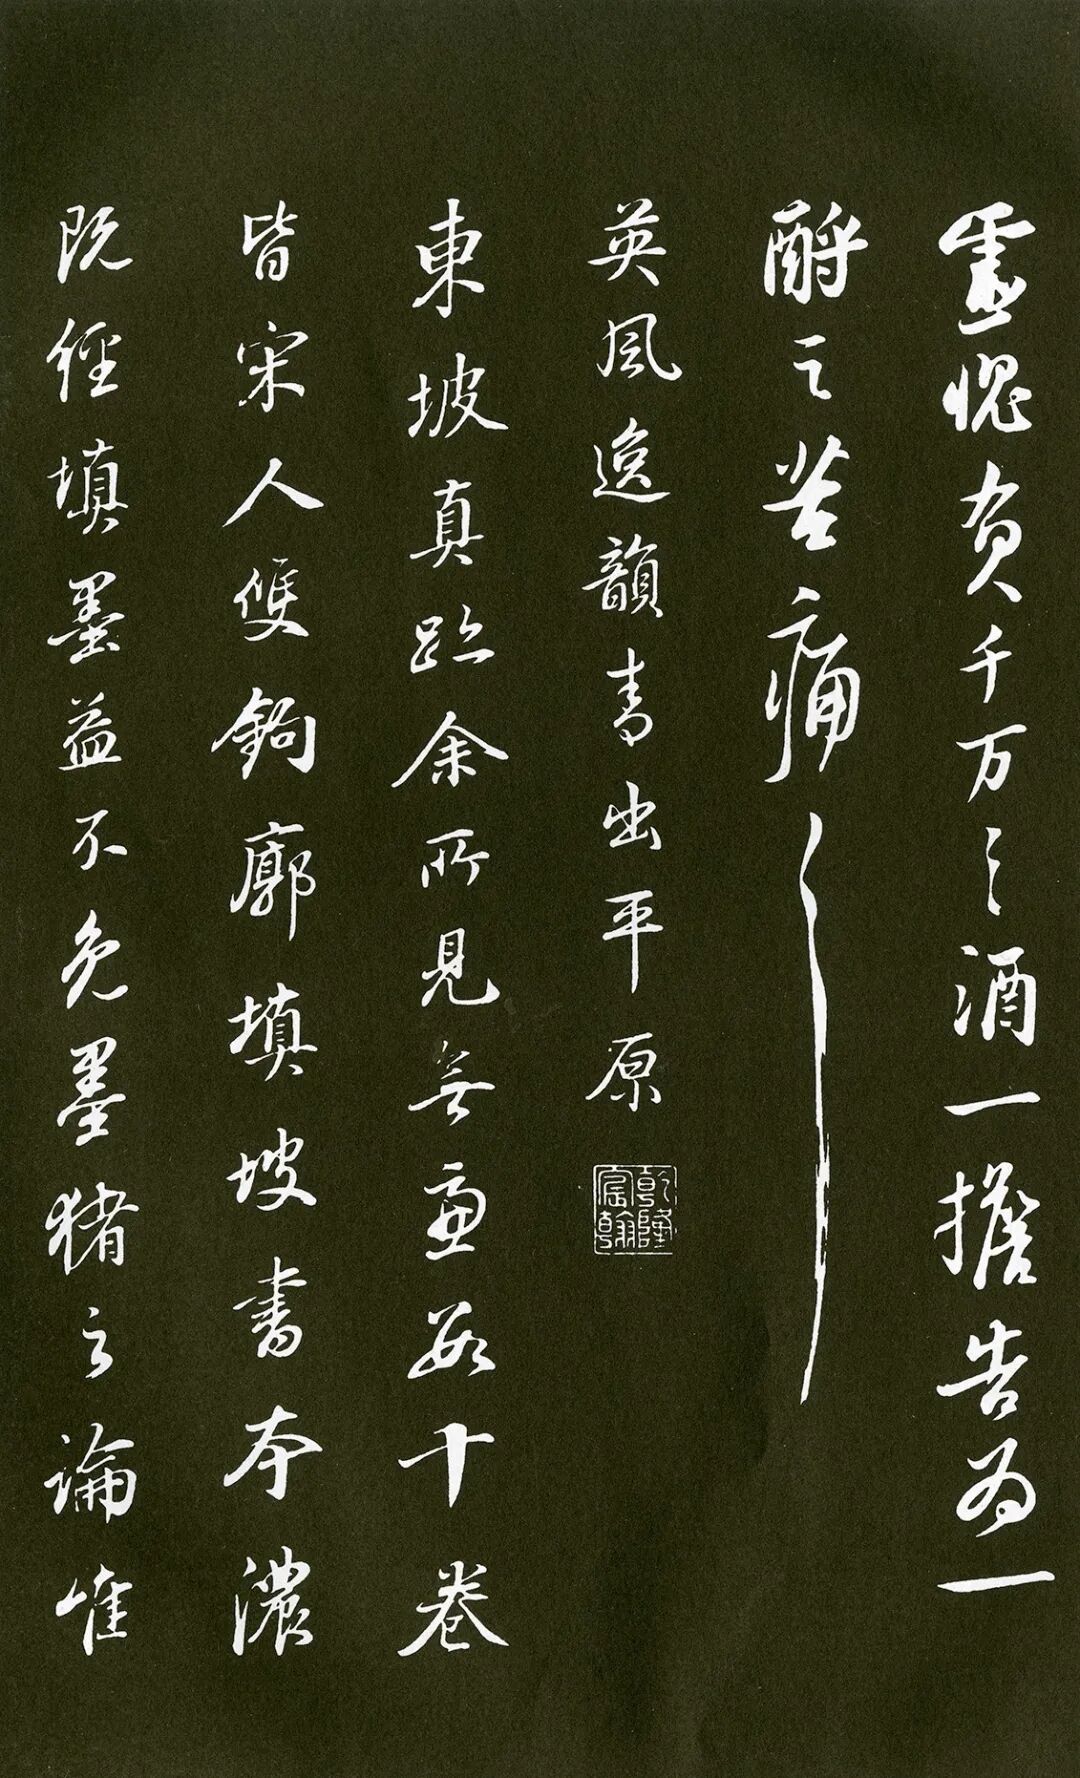 靈愧負千万〻酒一擔告為一
酹之苦痛
英風逸韻青出平原
乾隆宸翰
東坡真跡余所見無慮數十卷
皆宋人雙鉤廓填坡書本濃
既經填墨益不免墨猪之論唯